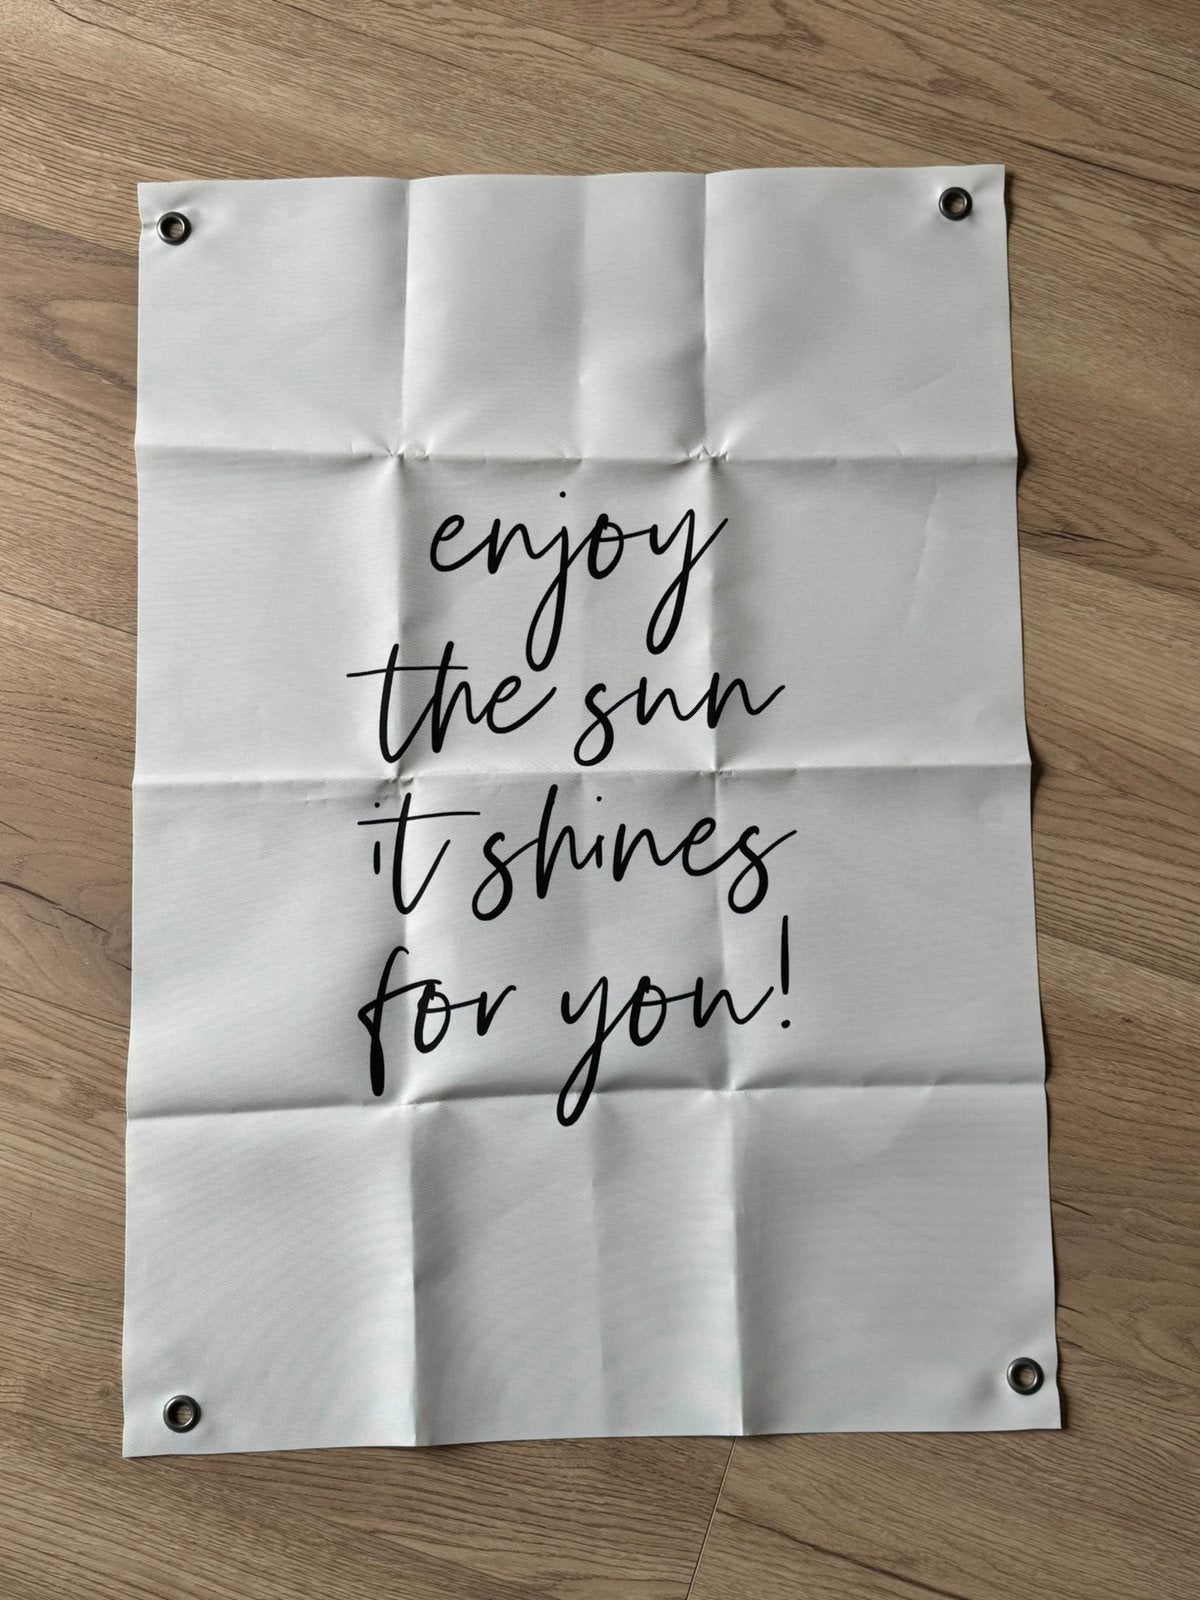 enjoy
the sun
it shines
for you!